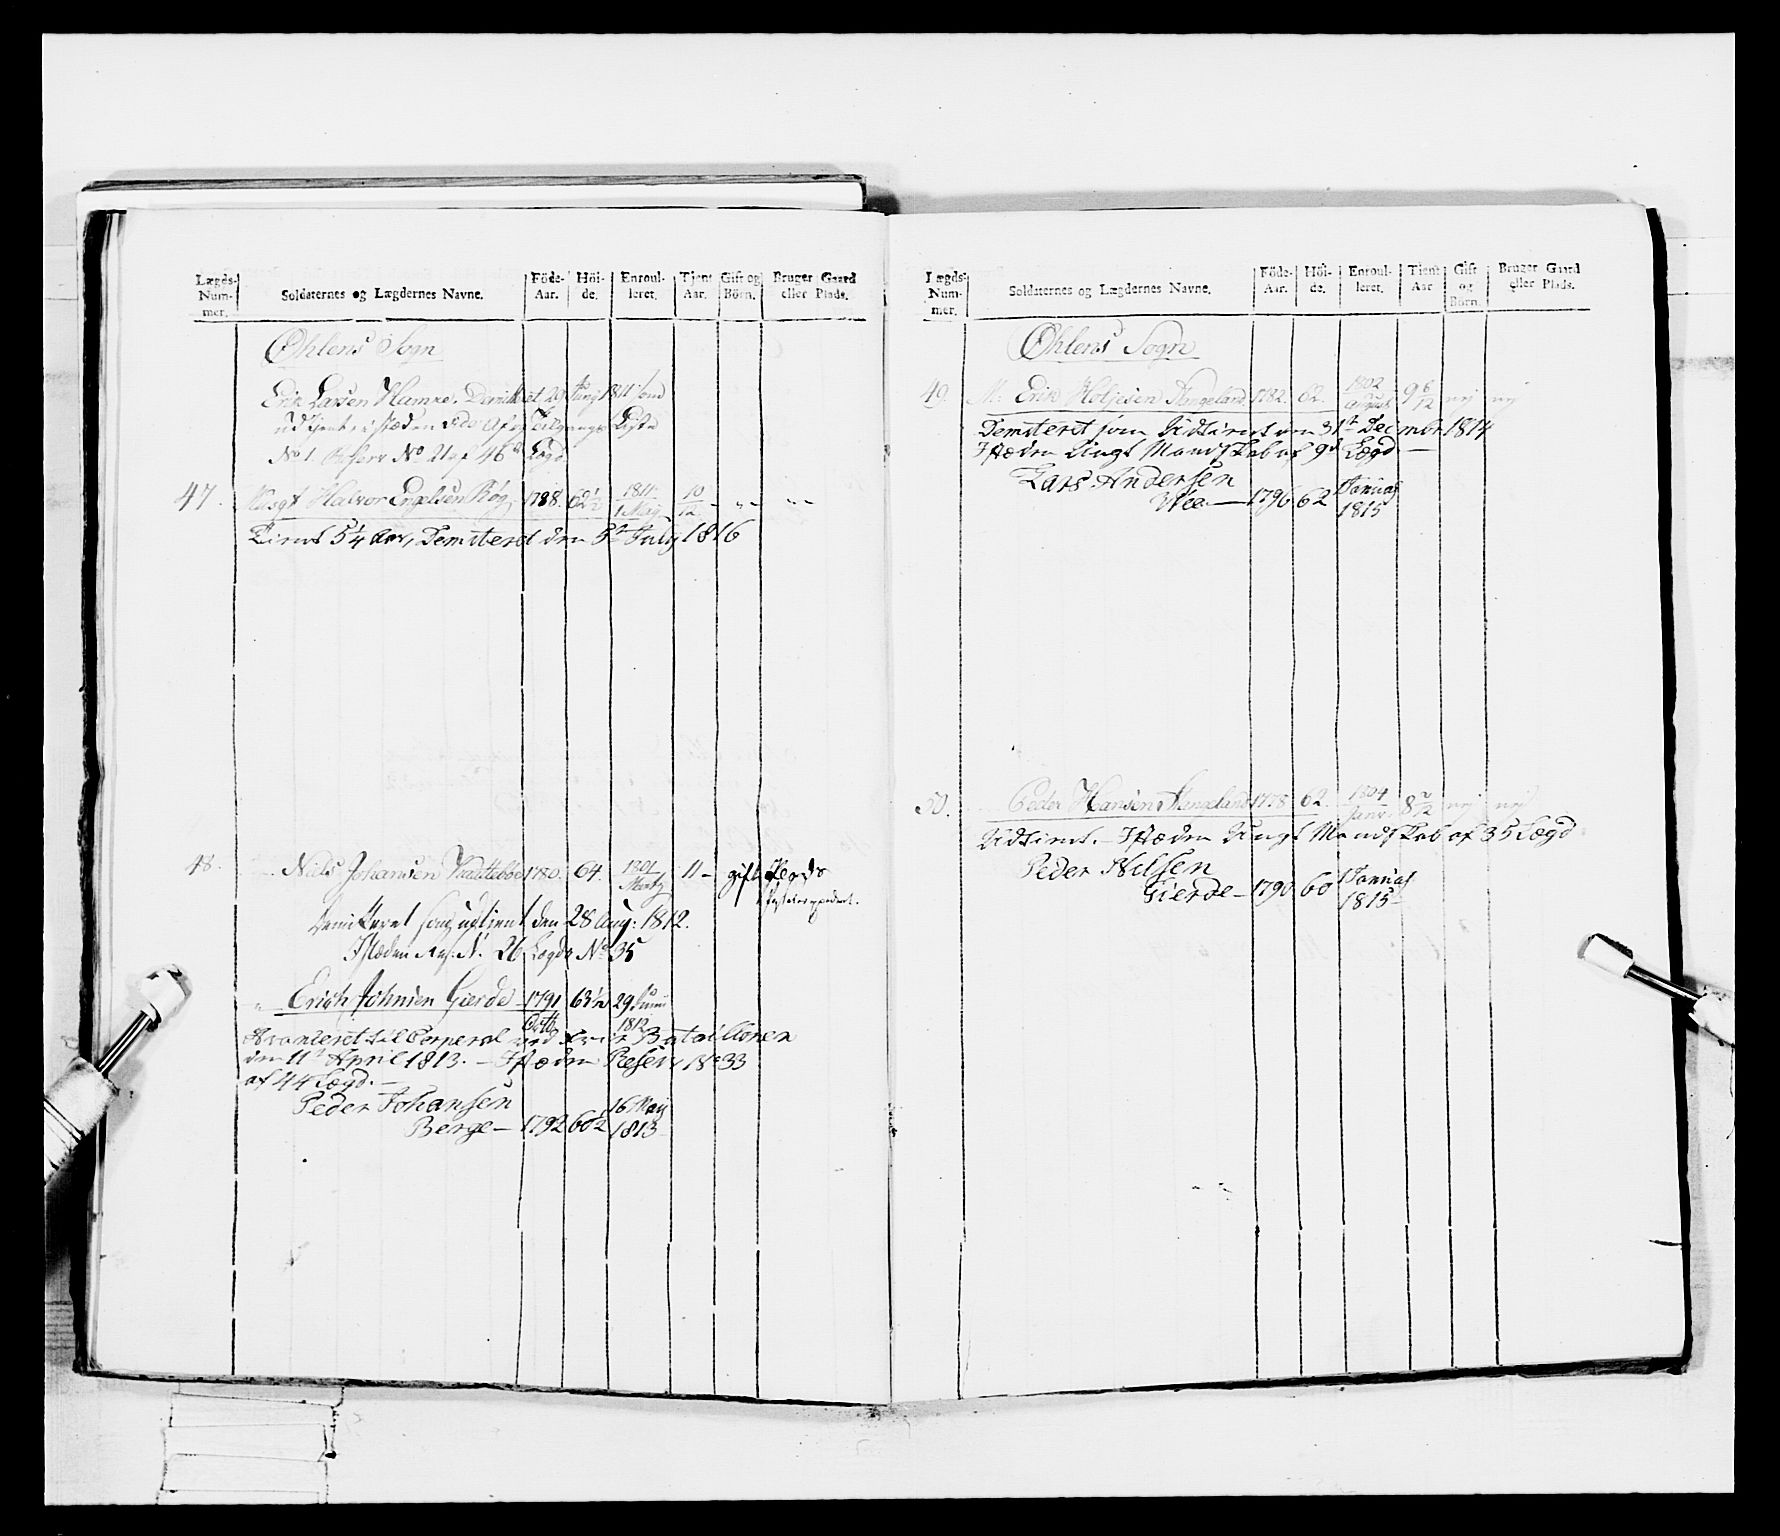 Lægds-Num-mer. Soldaternes og Lægdernes Navne. Föde-Aar. Höi-de. Enroul-leret. Tjent Aar. Gift og Börn. Bruger Gaard eller Plads.
Øhlens Sogn
Erik Larsen Hamre. Demitteret 29 Juny 1811 som
udtjent i stæden
No 1. Reserv No 21 af 46de Lægd
47. Musqt Halvor Engelsen Røg 1788. 62½ 1811. 1 May 10/12 - " " " "
Tient 5¼ Aar, Demiteret den 3de July 1816
48. Niels Johansen 1780. 64. 1801 Martz 11 - gift
Demitteret som udtient den 28 Aug: 1812.
Istæden Res: N. 26 Lægds No 35
" Erich Johnsen Gierde - 1791 63½ 29 Juni 1812
Avanceret til Corporal ved Bataillonen
den 11te April 1813. - Istæden Reserv No 33
af 44 Lægd. -
Peder Johansen
Berge - 1792 60½ 16 May 1813
Lægds-Num-mer. Soldaternes og Lægdernes Navne. Föde-Aar. Höi-de. Enroul-leret. Tjent Aar Gift og Börn. Bruger Gaard eller Plads.
Øhlens Sogn
49. M: Erik Holjesen Hangeland. 1782. 62. 1802 August 9 6/12 nej nej
Demiteret som Udtient den 31te Decmbr 1814
Istæden Ungt Mandskab af 9de Lægd -
Lars Andersen
Wea - 1796 62 1 Januar 1815
50. Peder Hansen Hangeland 1778 62. 1804 Janv: 8 2/12 nej nej
Udtient. - Istæden Ungt Mandskab af 35 Lægd
Peder Nilsen
Gierde - 1790 60 1 Januar 1815